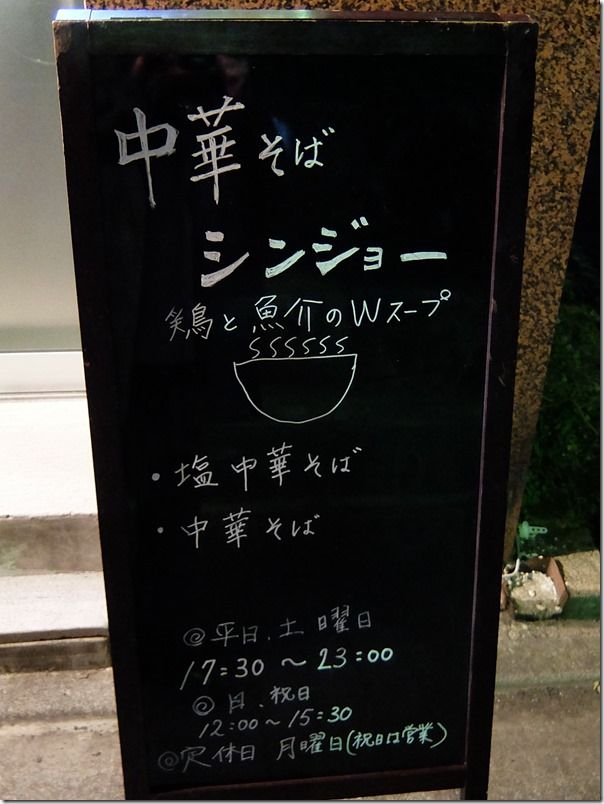 中華そば
シンジョー
鶏と魚介のWスープ
・塩中華そば
・中華そば
◎平日、土曜日
17:30〜23:00
◎日、祝日
12:00〜15:30
◎定休日 月曜日(祝日は営業)